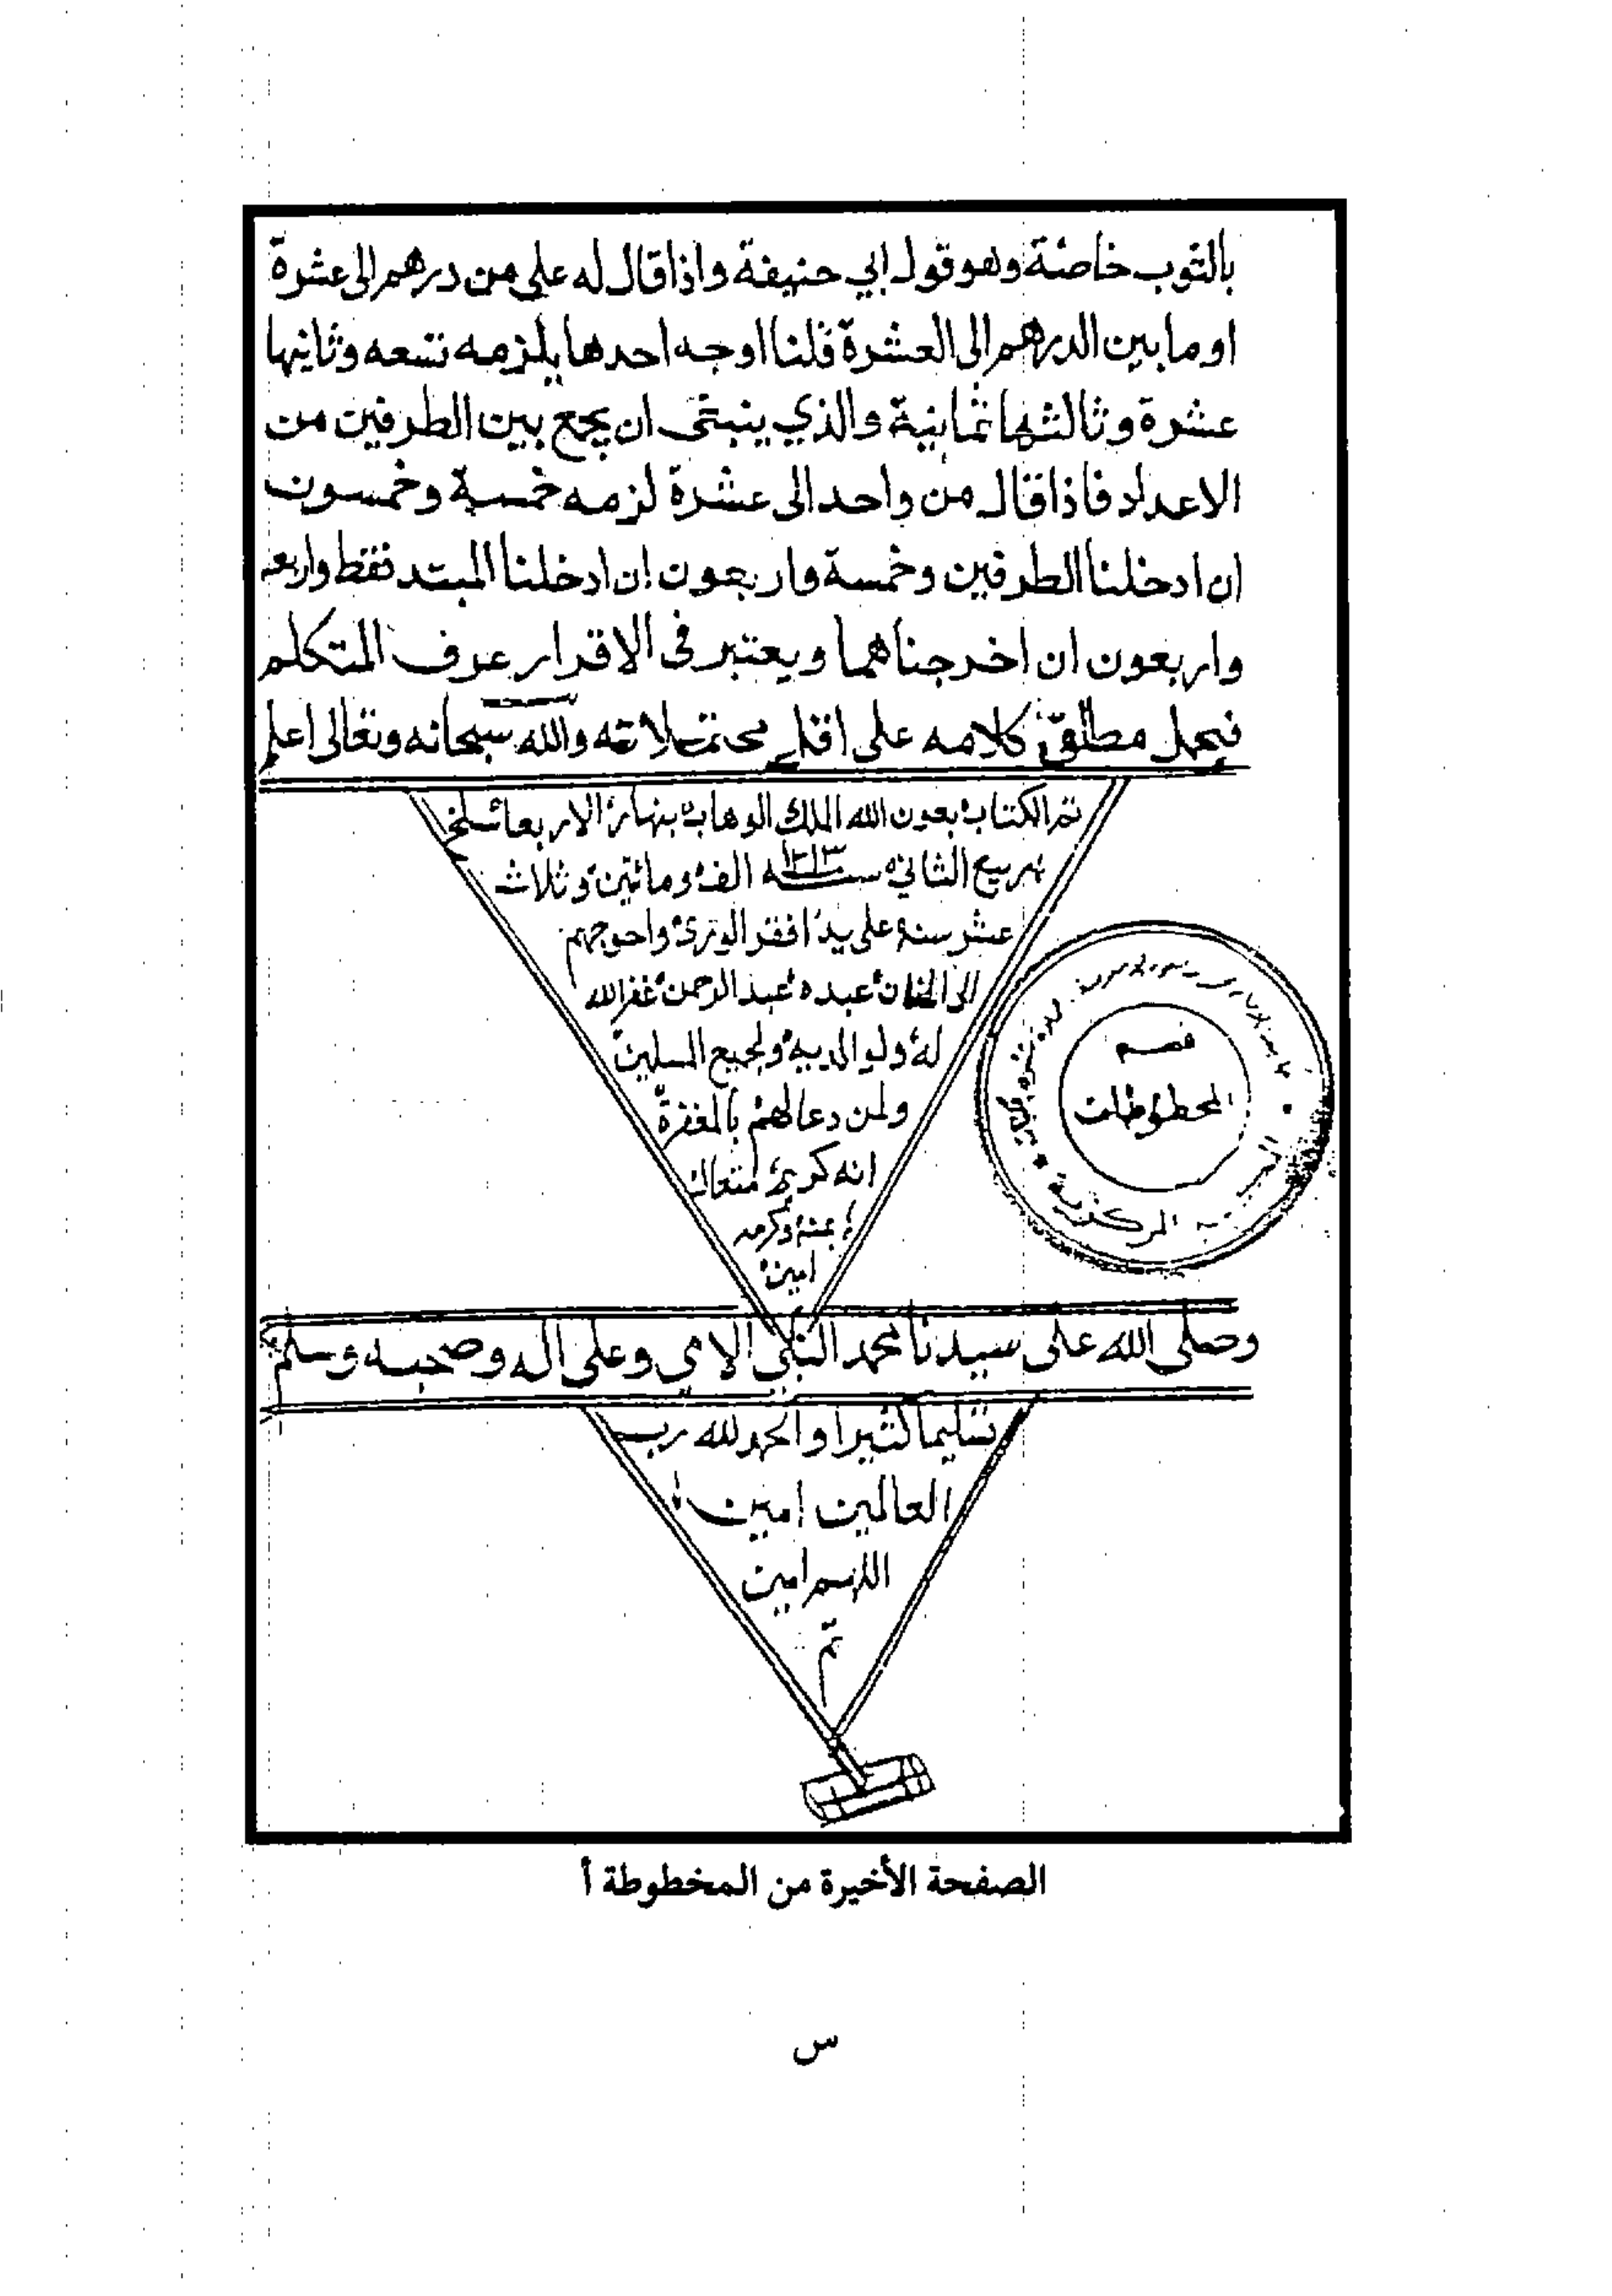 بالثوب خاصة وهو قول ابي حنيفة واذا قال له علي من درهم الى عشرة
او ما بين الدرهم الى العشرة قلنا اوجه احدها يلزمه تسعه وثانيها
عشرة وثالثها ثمانية والذي ينبتى ان يجمع بين الطرفين من
الاعداد فاذا قال من واحد الى عشرة لزمه خمسة وخمسون
ان ادخلنا الطرفين وخمسة واربعون ان ادخلنا المبتد فقط واربعه
واربعون ان اخرجناهما ويعتبر في الاقرار عرف المتكلم
فيحمل مطلق كلامه على اقل محتملاته والله سبحانه وتعالى اعلم
تم الكتاب بعون الله الملك الوهاب بنهار الاربعا سلخ
ربيع الثاني سنة ١٢١٣ الف ومائتين وثلاث
عشر سنة على يد افقر الورى واحوجهم
الى عبده عبد الرحمن غفر الله
له ولوالديه ولجميع المسلمين
ولمن دعا لهم بالمغفرة
انه كريم متعال
بمنه وكرمه
امين
وصلى الله على سيدنا محمد النبي الامي وعلى اله وصحبه وسلم
تسليما كثيرا والحمد لله رب
العالمين امين
اللهم امين
تم
قسم
المخطوطات
المركزية
الصفحة الأخيرة من المخطوطة أ
س